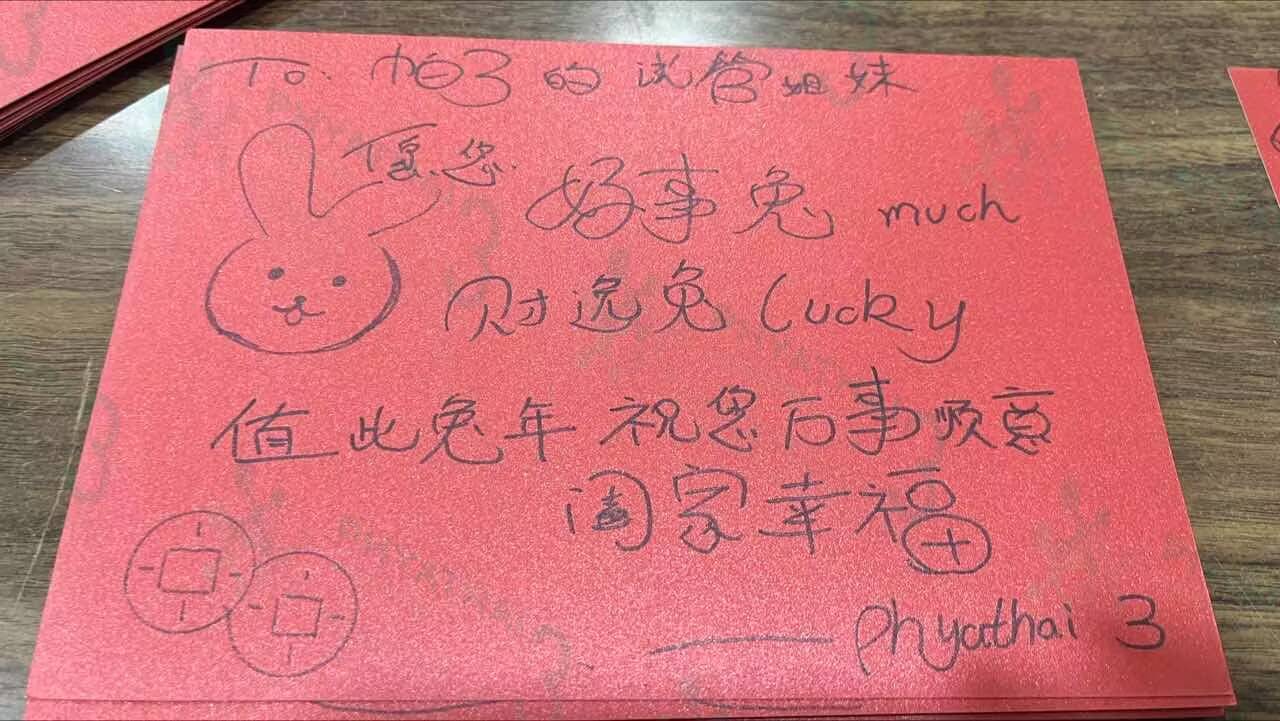 To. 帕3的试管姐妹
愿您
好事兔 much
财逸兔 Lucky
值此兔年 祝您万事顺意
阖家幸福
—— Phyathai 3